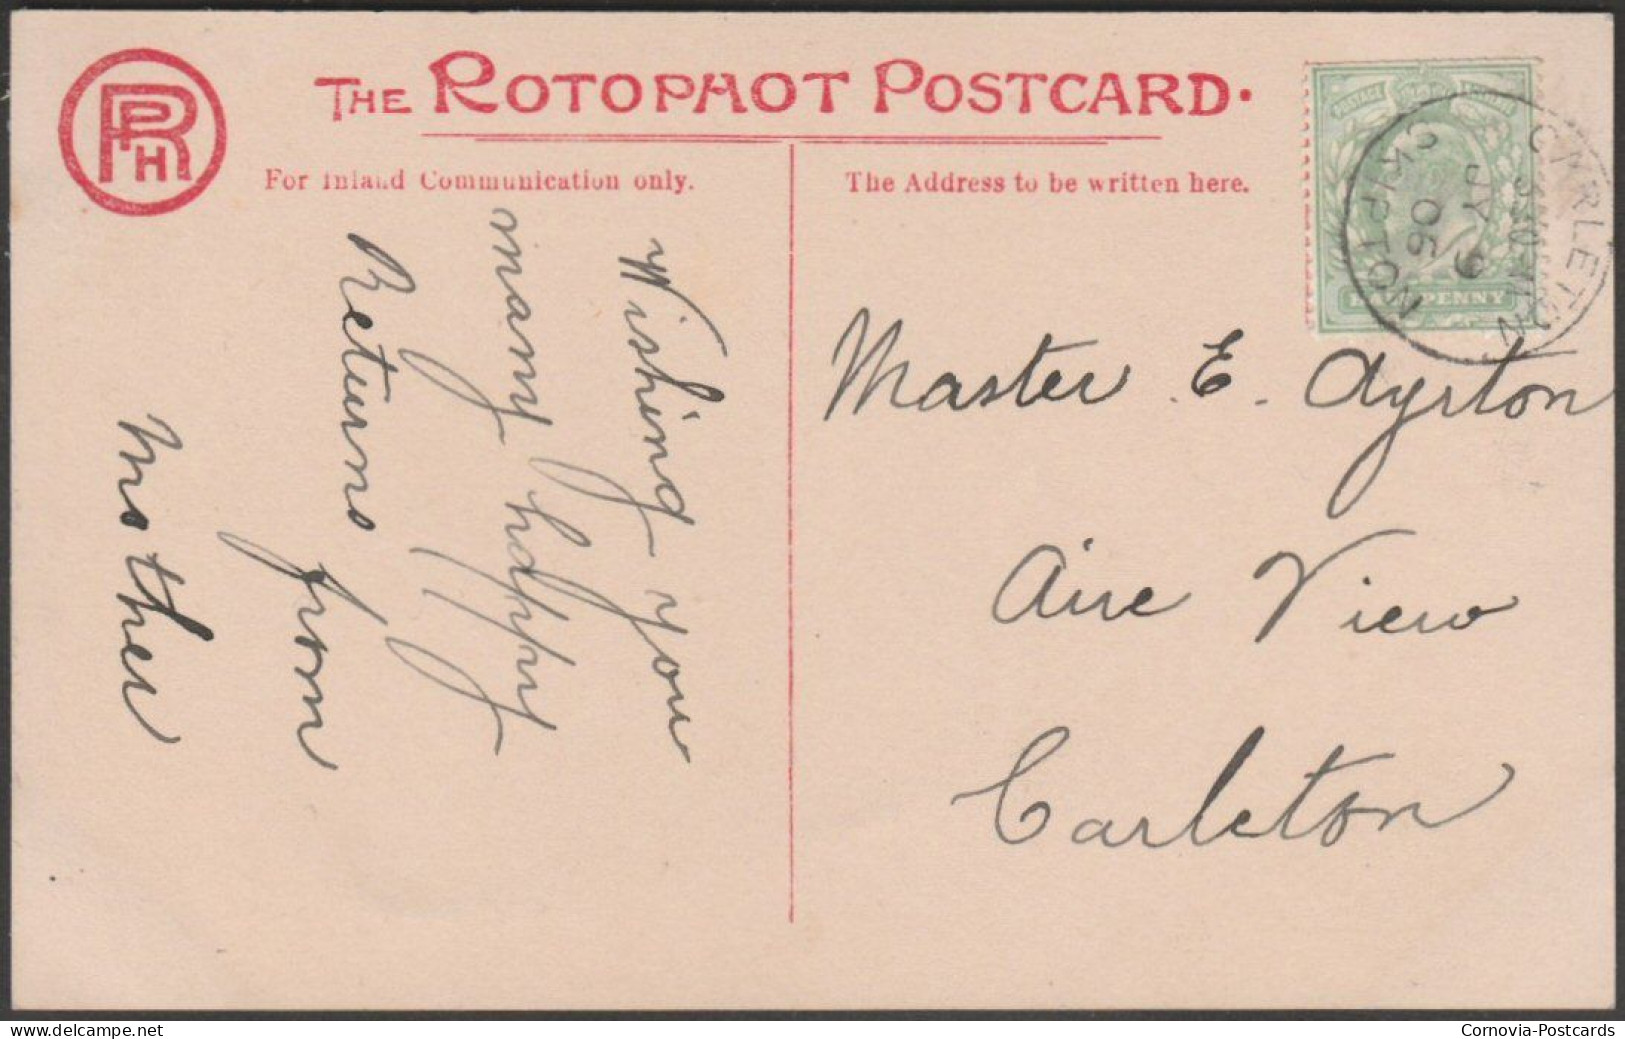 RPH
THE ROTOPHOT POSTCARD.
For Inland Communication only.
The Address to be written here.
POSTAGE
HALFPENNY
CARLETON
SKIPTON
JY 9
06
Wishing you
many happy
Returns
from
Mother
Master E. Ayrton
Aire View
Carleton
delcampe.net
Cornovia-Postcards